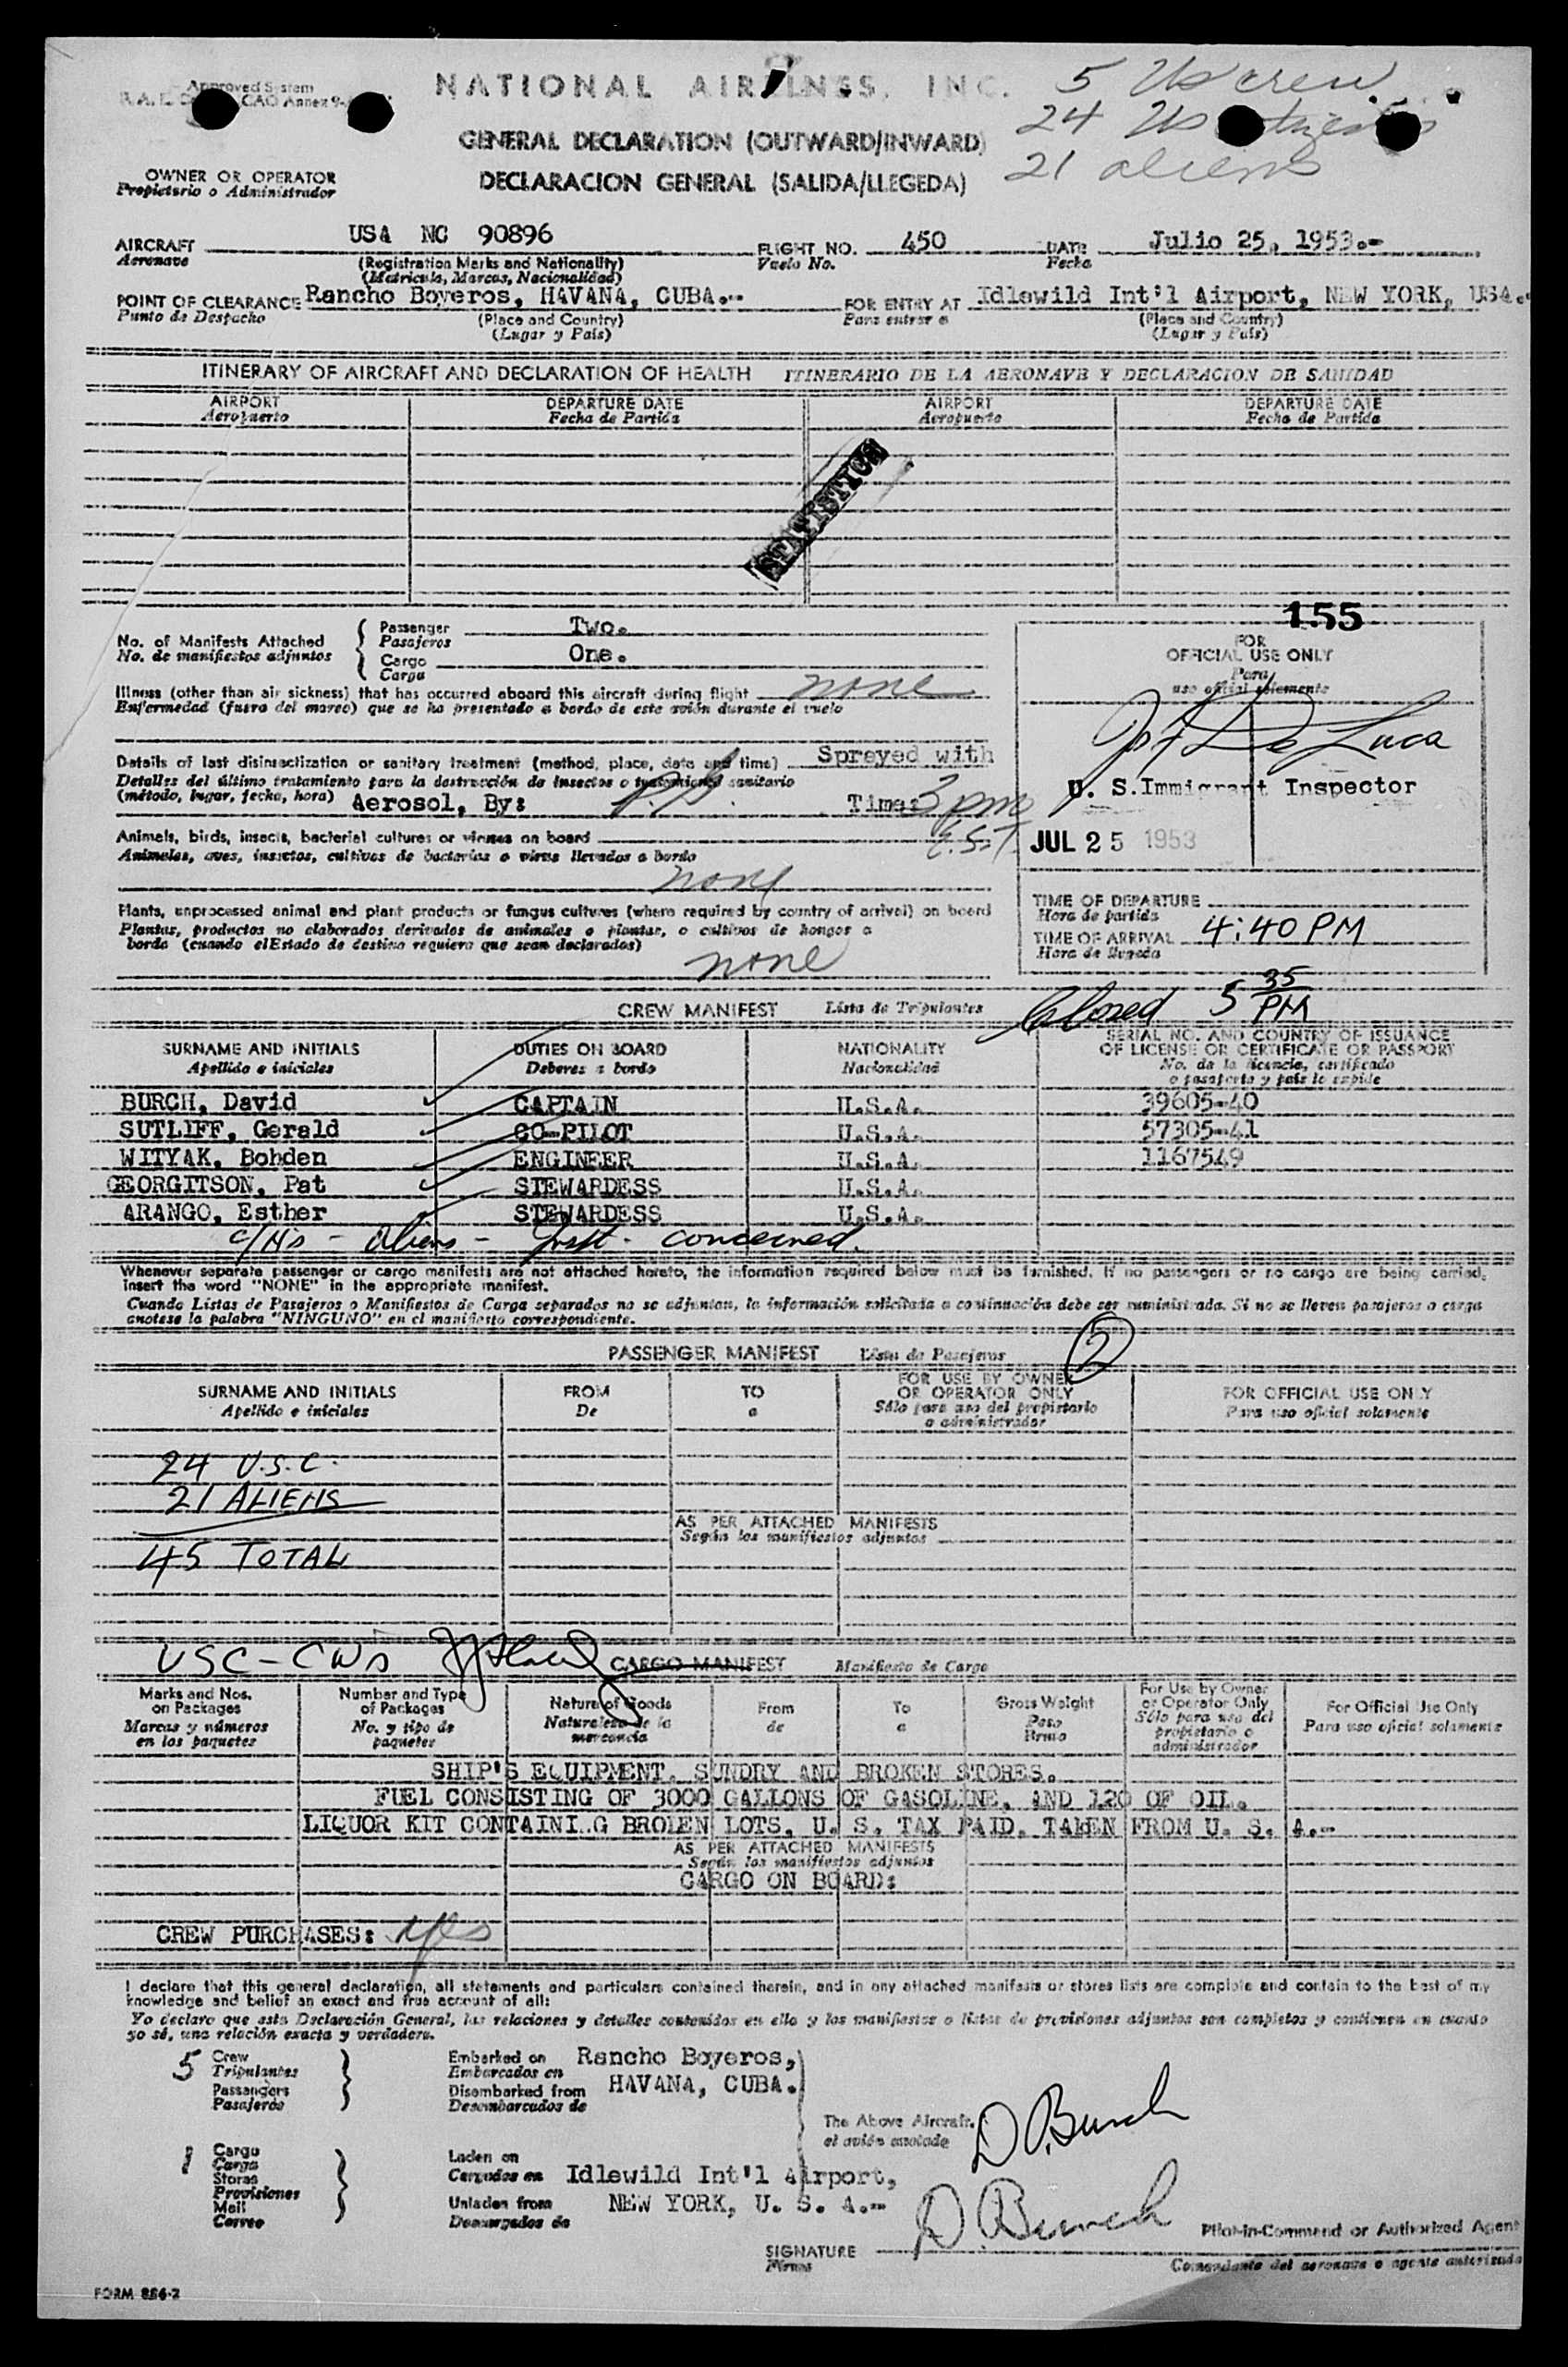 Approved System
CAO Annex 9
NATIONAL AIRLINES, INC.
5 US crew
24 US
21 aliens
GENERAL DECLARATION (OUTWARD/INWARD)
DECLARACION GENERAL (SALIDA/LLEGEDA)
OWNER OR OPERATOR
Propietario o Administrador
AIRCRAFT USA NC 90896 FLIGHT NO. 450 DATE Julio 25, 1953.-
Aeronave (Registration Marks and Nationality) Vuelo No. Fecha
(Matricula, Marcas, Nacionalidad)
POINT OF CLEARANCE Rancho Boyeros, HAVANA, CUBA.-- FOR ENTRY AT Idlewild Int'l Airport, NEW YORK, USA.-
Punto de Despacho (Place and Country) Para entrar a (Place and Country)
(Lugar y País) (Lugar y País)
ITINERARY OF AIRCRAFT AND DECLARATION OF HEALTH ITINERARIO DE LA AERONAVE Y DECLARACION DE SANIDAD
AIRPORT DEPARTURE DATE AIRPORT DEPARTURE DATE
Aeropuerto Fecha de Partida Aeropuerto Fecha de Partida
STATISTICS
155
No. of Manifests Attached Passenger Two.
No. de manifiestos adjuntos Pasajeros
Cargo One.
Carga
FOR
OFFICIAL USE ONLY
Para
uso oficial solamente
Illness (other than air sickness) that has occurred aboard this aircraft during flight none
Enfermedad (fuera del mareo) que se ha presentado a bordo de este avión durante el vuelo
De Luca
U. S. Immigrant Inspector
JUL 25 1953
Details of last disinsectization or sanitary treatment (method, place, date and time) Sprayed with
Detalles del último tratamiento para la destrucción de insectos o tratamiento sanitario
(método, lugar, fecha, hora) Aerosol, By: Time: 3 pm
E.S.T.
Animals, birds, insects, bacterial cultures or viruses on board
Animales, aves, insectos, cultivos de bacterias o virus llevados a bordo
none
Plants, unprocessed animal and plant products or fungus cultures (where required by country of arrival) on board
Plantas, productos no elaborados derivados de animales o plantas, o cultivos de hongos a
bordo (cuando el Estado de destino requiera que sean declarados)
none
TIME OF DEPARTURE
Hora de partida
TIME OF ARRIVAL 4:40 PM
Hora de llegada
Closed 5 35 PM
CREW MANIFEST Lista de Tripulantes
SURNAME AND INITIALS DUTIES ON BOARD NATIONALITY SERIAL NO. AND COUNTRY OF ISSUANCE
OF LICENSE OR CERTIFICATE OR PASSPORT
Apellido e iniciales Deberes a bordo Nacionalidad No. de la licencia, certificado
o pasaporte y país lo expide
BURCH, David CAPTAIN U.S.A. 39605-40
SUTLIFF, Gerald CO-PILOT U.S.A. 57305-41
WITYAK, Bohden ENGINEER U.S.A. 1167549
GEORGITSON, Pat STEWARDESS U.S.A.
ARANGO, Esther STEWARDESS U.S.A.
- Aliens - Inst. concerned.
Whenever separate passenger or cargo manifests are not attached hereto, the information required below must be furnished. If no passengers or no cargo are being carried,
insert the word "NONE" in the appropriate manifest.
Cuando Listas de Pasajeros o Manifiestos de Carga separados no se adjuntan, la información solicitada a continuación debe ser suministrada. Si no se lleven pasajeros o carga
anotese la palabra "NINGUNO" en el manifiesto correspondiente.
PASSENGER MANIFEST Lista de Pasajeros 2
SURNAME AND INITIALS FROM TO FOR USE BY OWNER
OR OPERATOR ONLY FOR OFFICIAL USE ONLY
Apellido e iniciales De a Sólo para uso del propietario
o administrador Para uso oficial solamente
24 U.S.C.
21 ALIENS
AS PER ATTACHED MANIFESTS
Según los manifiestos adjuntos
45 TOTAL
USC - CWs
CARGO MANIFEST Manifiesto de Cargo
Marks and Nos.
on Packages
Marcas y números
en los paquetes
Number and Type
of Packages
No. y tipo de
paquetes
Nature of Goods
Naturaleza de la
mercancía
From
de
To
a
Gross Weight
Peso
Bruto
For Use by Owner
or Operator Only
Sólo para uso del
propietario o
administrador
For Official Use Only
Para uso oficial solamente
SHIP'S EQUIPMENT, SUNDRY AND BROKEN STORES.
FUEL CONSISTING OF 3000 GALLONS OF GASOLINE, AND 120 OF OIL.
LIQUOR KIT CONTAINI.G BROKEN LOTS, U. S. TAX PAID, TAKEN FROM U. S. A.-
AS PER ATTACHED MANIFESTS
Según los manifiestos adjuntos
CARGO ON BOARD:
CREW PURCHASES: yes
I declare that this general declaration, all statements and particulars contained therein, and in any attached manifests or stores lists are complete and contain to the best of my
knowledge and belief an exact and true account of all:
Yo declaro que esta Declaración General, las relaciones y detalles contenidos en ella y los manifiestos o listas de provisiones adjuntos son completos y contienen en cuanto
yo sé, una relación exacta y verdadera.
5 Crew
Tripulantes
Passengers
Pasajeros
Embarked on Rancho Boyeros,
Embarcados en
Disembarked from HAVANA, CUBA.
Desembarcados de
The Above Aircraft.
el avión anotado
D. Burch
1 Cargo
Carga
Stores
Provisiones
Mail
Correo
Laden on
Cargados en Idlewild Int'l Airport,
Unladen from NEW YORK, U. S. A.--
Descargados de
D. Burch
Pilot-in-Command or Authorized Agent
SIGNATURE
Firma
Comandante del aeronave o agente autorizado
FORM 886-2